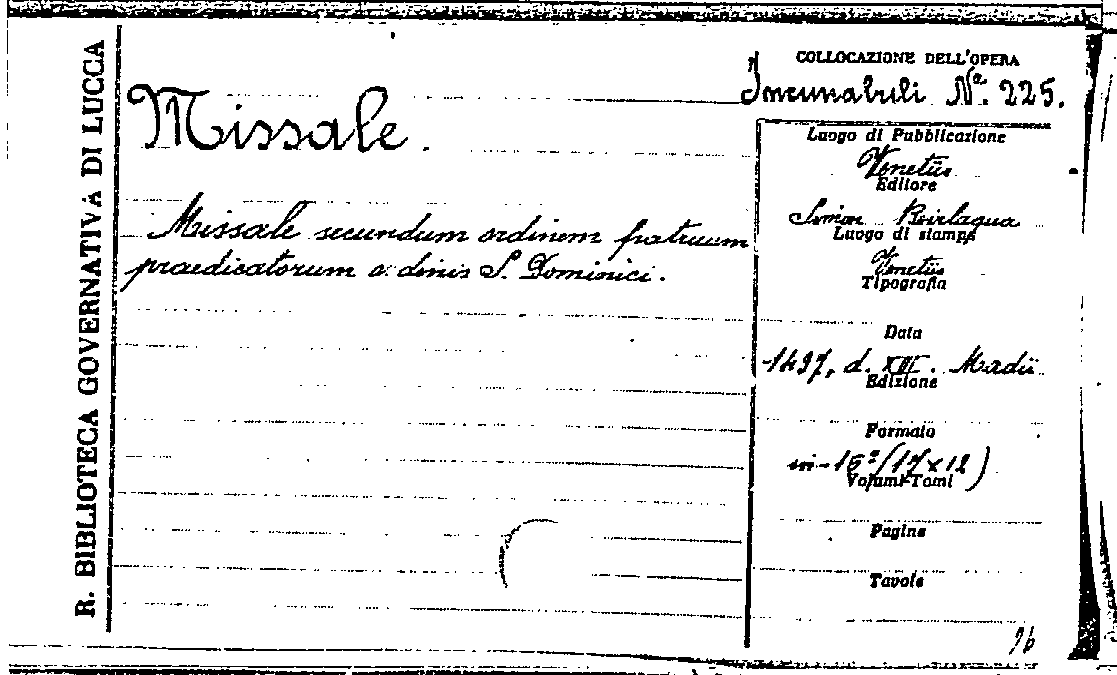 R. BIBLIOTECA GOVERNATIVA DI LUCCA
Missale.
Missale secundum ordinem fratrum
praedicatorum o dinis S. Dominici.
COLLOCAZIONE DELL'OPERA
Incunabuli Nº. 225.
Luogo di Pubblicazione
Venetiis
Editore
Simon Beirlaqua
Luogo di stampa
Venetiis
Tipografia
Data
1497, d. XIII. Madii
Edizione
Formato
in-16º (17 x 12)
Volumi-Tomi
Pagine
Tavole